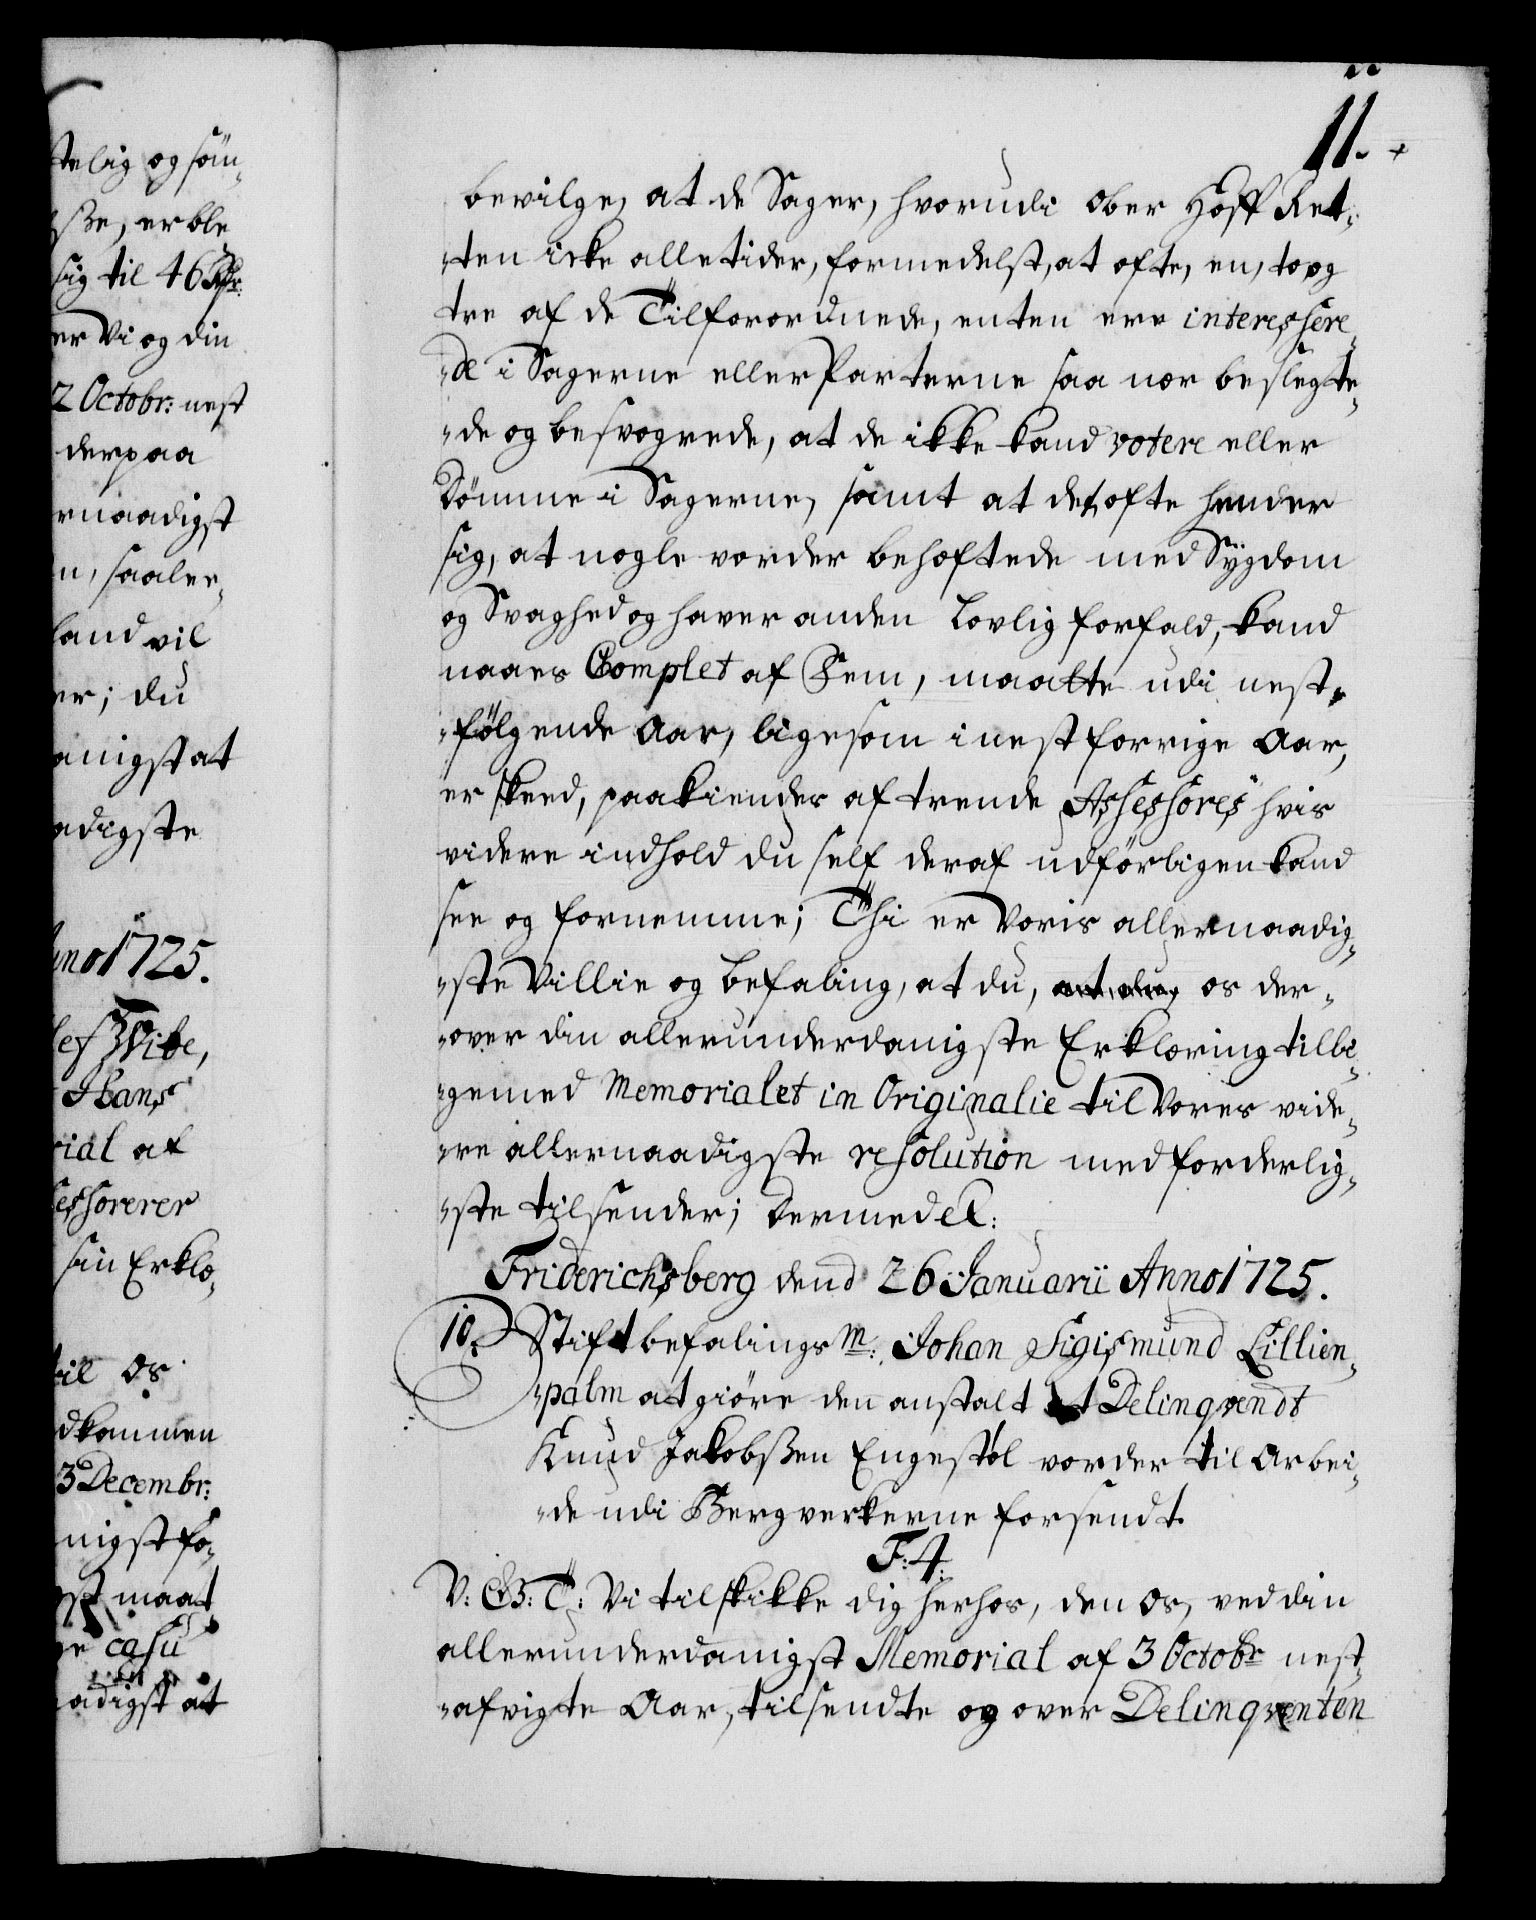 11.
bevilge, at de Sager, hvorudi Ober Hoff Ret-
-ten icke alletider, formedelst, at ofte, en, to og
tre af de Tilforordnede, enten ere interessere-
-de i Sagerne eller Parterne saa nær beslegte-
-de og besvogrede, at de ikke kand votere eller
dömme i Sagerne, samt at det ofte hender
sig, at nogle vorder behæftede med Sÿgdom
og Svaghed og haver anden Lovlig forfald, kand
naaes Complet af Fem, maatte udi nest-
-fölgende Aar, ligesom i nest forrige Aar,
er skeed, paakiendes af trende Assessores hvis
videre indhold du self deraf udförligen kand
see og fornemme; Thi er Voris allernaadig-
-ste Villie og befaling, at du, at du, os der-
-over din allerunderdanigste Erklæring tilli-
-gemed Memorialet in Originalie til Vores vide-
-re allernaadigste resolution med forderlig-
-ste tilsender; Dermed etc:
Friderichsberg dend 26 Januarii Anno 1725.
10. Stiftbefalingsm: Johan Sigismund Lillien-
-palm at giöre den anstalt at Delinqvendt
Knud Jakobssen Engestöl vorder til Arbei-
-de udi Bergverkerne forsendt.
F: 4.
V: G: T: Vi tilskikke dig herhos, den Os, ved din
allerunderdanigst Memorial af 3 Octobr nest-
-afvigte Aar, tilsendte og over Delinqventen
telig og sön-
sse, er ble
sig til 46 Rdr:
er Vi og din
2 Octobr: nest
derpaa
rnaadigst
n, saale-
land vil
er; du
anigst at
adigste
nno 1725.
lef Wibe,
Hans
rial af
essorerer
sin Erklæ-
til Os
dkommen
3 Decembr:
nigst fo-
gst maat
ge casu
adigst at